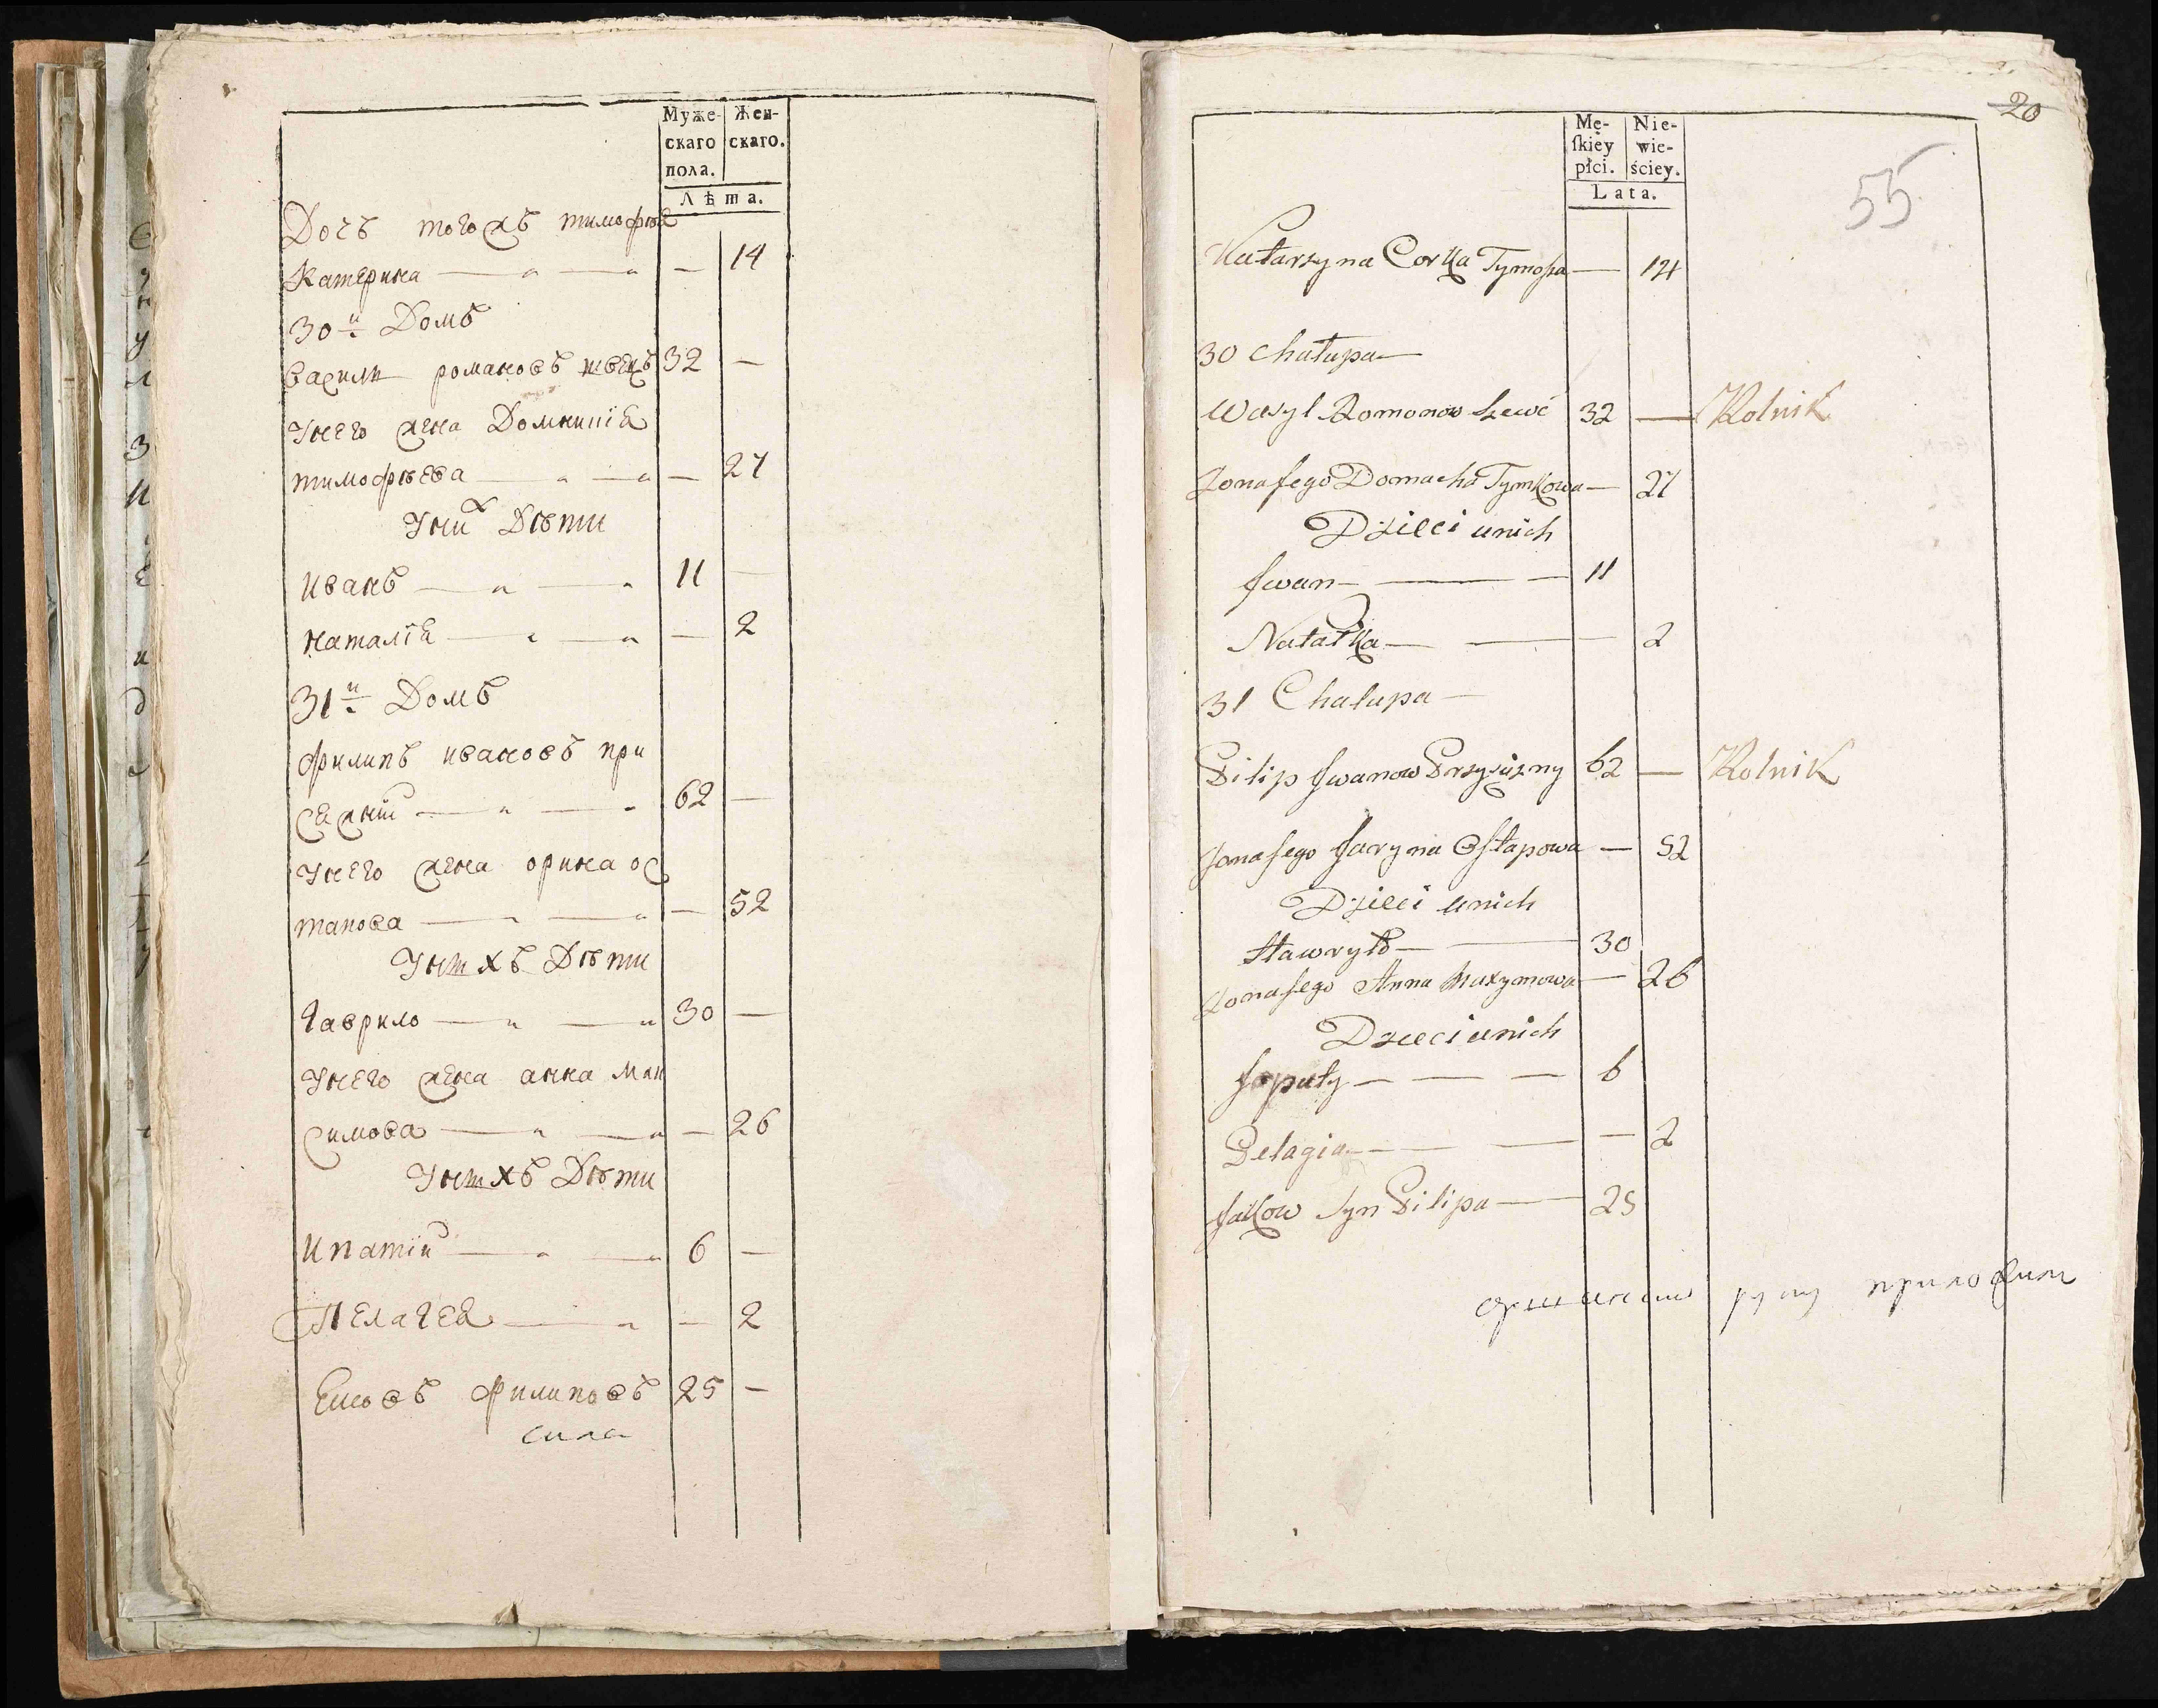 Муже-
скаго
пола.
Жен-
скаго.
Лѣта.
Дочъ тогожъ тимофѣя
Катерина — „ — „ — 14
30й Домъ
василй романовъ швецъ 32 —
Унего жена Домникия
тимофѣева — „ — „ — 27
Уних Дѣти
иванъ — „ — „ 11 —
наталія — „ — „ — 2
31й Домъ
филипъ ивановъ при
сяжній — „ — „ 62 —
Унего жена орина ос
тапова — „ — „ — 52
Унихъ Дѣти
Гаврило — „ — „ 30 —
Унего жена анна мак
симова — „ — „ — 26
Унихъ Дѣти
ипатій — „ — „ 6 —
Пелагея — „ — 2
филиповъ 25 —
20
55
Mę-
ſkiey
płci.
Nie-
wie-
ściey.
Lata.
Katarzyna Corka Tymosza — 14
30 Chałupa —
Wasyl Romonow Szewć 32 — Rolnik
Zona Jego Domacha Tymkowa — 27
Dzieci unich
Iwan — — — 11
Natalka — — — 2
31 Chałupa —
Pilip Iwanow Przysiężny 62 — Rolnik
Zona Jego Jaryna Ostapowa — 52
Dzieci unich
Hawryło — — 30
Zona Jego Anna Maxymowa — 26
Dzieci unich
Joputy — — — 6
Pelagia — — — 2
Jakow Syn Pilipa — 25
руку приложил